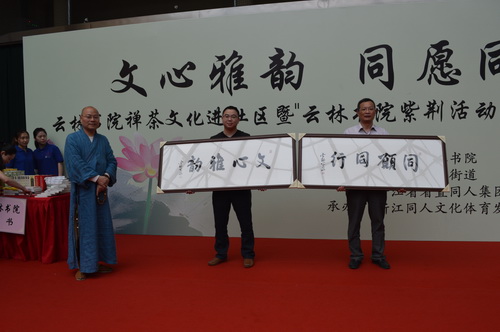 文心雅韵 同愿同
云林书院禅茶文化进社区暨"云林书院紫荆活动
书院
街道
省直同人集
承办 江同人文化体育发
文心雅韻
同願同行
林书院
书